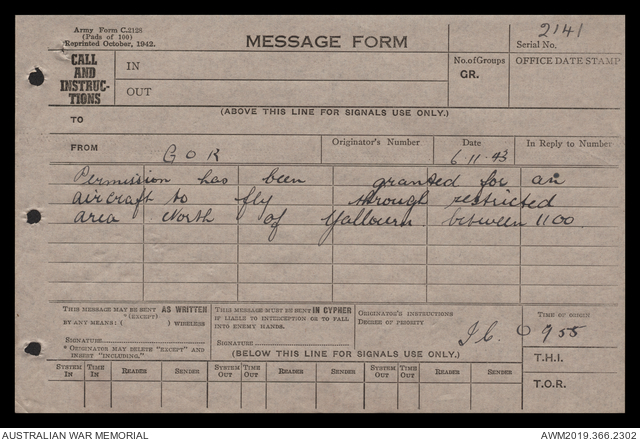 Army Form C.2128
(Pads of 100)
Reprinted October, 1942.
MESSAGE FORM
2141
Serial No.
CALL AND INSTRUC-TIONS
IN
OUT
No. of Groups
GR.
OFFICE DATE STAMP
(ABOVE THIS LINE FOR SIGNALS USE ONLY.)
TO
FROM
G O R
Originator's Number
Date
6.11.43
In Reply to Number
Permission has been granted for an
aircraft to fly through restricted
area North of Yallourn between 1100
THIS MESSAGE MAY BE SENT AS WRITTEN
*(EXCEPT)
BY ANY MEANS: ( ) WIRELESS
SIGNATURE
* ORIGINATOR MAY DELETE "EXCEPT" AND
INSERT "INCLUDING."
THIS MESSAGE MUST BE SENT IN CYPHER
IF LIABLE TO INTERCEPTION OR TO FALL
INTO ENEMY HANDS.
SIGNATURE
ORIGINATOR'S INSTRUCTIONS
DEGREE OF PRIORITY
TIME OF ORIGIN
0955
T.H.I.
T.O.R.
(BELOW THIS LINE FOR SIGNALS USE ONLY.)
SYSTEM IN
TIME IN
READER
SENDER
SYSTEM OUT
TIME OUT
READER
SENDER
SYSTEM OUT
TIME OUT
READER
SENDER
AUSTRALIAN WAR MEMORIAL
AWM2019.366.2302